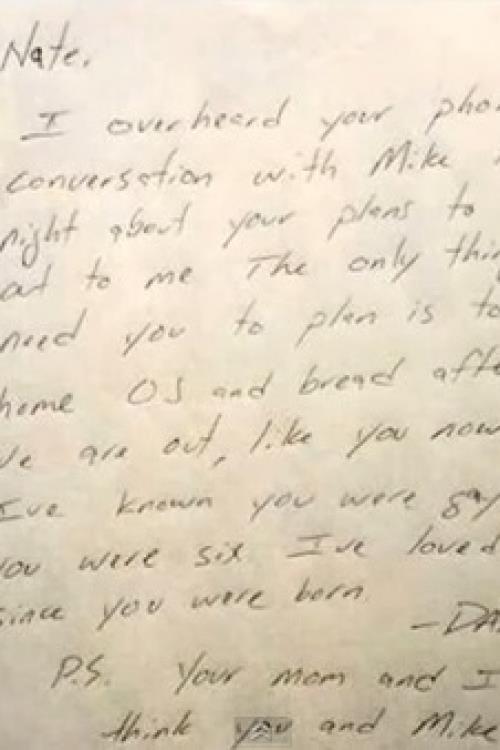 Nate,
I overheard your pho
conversation with Mike
night about your plans to
out to me The only thin
need you to plan is to
home OJ and bread afte
We are out, like you now
I've known you were gay
you were six I've loved
since you were born.
-DA
P.S. Your mom and I
think you and Mike